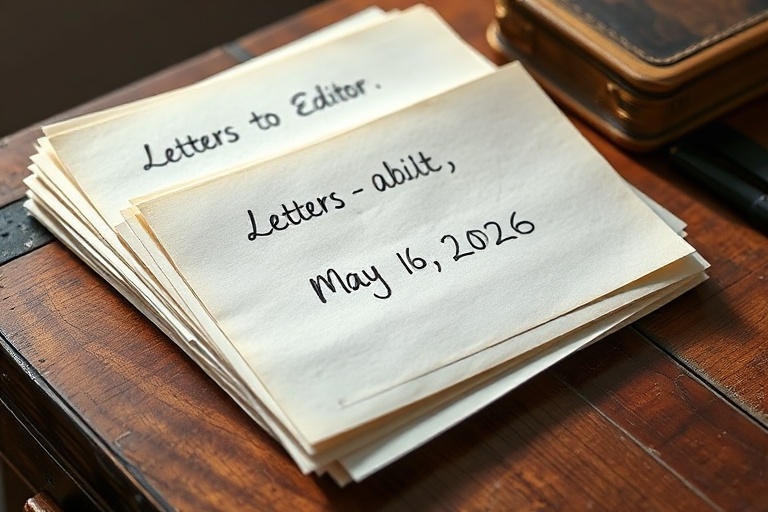 Letters to Editor.
Letters - abilt,
May 16, 2026